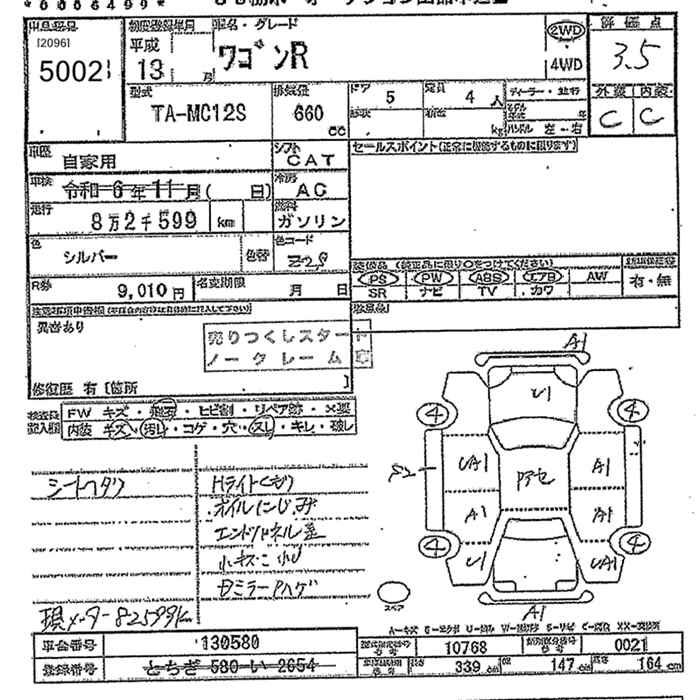 *0006499*
出品番号
120961
50021
初度登録年月
平成
13 月
車名・グレード
ワゴンR
2WD
4WD
評価点
3.5
型式
TA-MC12S
排気量
660
cc
ドア
5
定員
4 人
形状
kg
ディーラー・並行
モデル 年
ハンドル 左・右
外装 内装
C C
車歴
自家用
シフト
CAT
セールスポイント(正常に機能するものに限ります)
車検
令和 6年 11月( 日)
冷房
AC
走行
8万2千599 km
燃料
ガソリン
色
シルバー
色替
色コード
Z2S
装備品 (純正品に限り○をつけてください)
PS PW ABS エアB AW
SR ナビ TV カワ
有・無
R券
9,010円
名変期限
月 日
異音あり
売りつくしスタート
ノークレーム
修復歴 有[箇所 ]
検査員
記入欄
FW キズ・飛石・ヒビ割・リペア跡・×要
内装 キズ・汚れ・コゲ・穴・スレ・キレ・破レ
シートヘタリ
Hライトくもり
オイルにじみ
エンドパネル歪
小キズ・小U
Bミラーハゲ
現メーター82599K
A1
U1
4
4
UA1
A1
82
PアセA1
A1
4
4
U1
UA1
A1
スペア
車台番号
130580
登録番号
とちぎ 580 い 2654
10768
0021
長さ 339 cm
幅 147 cm
高さ 164 cm